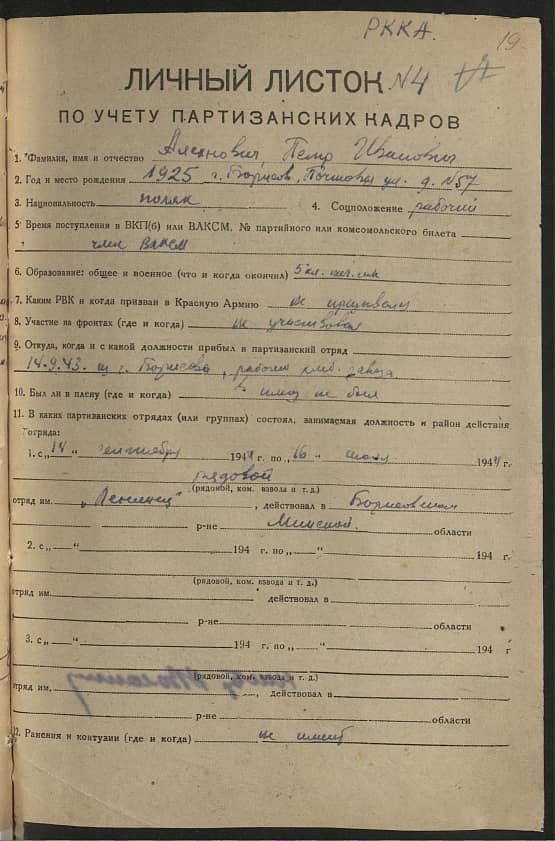 РККА.
19
ЛИЧНЫЙ ЛИСТОК №4
ПО УЧЕТУ ПАРТИЗАНСКИХ КАДРОВ
1. Фамилия, имя и отчество Алехнович, Петр Иванович
2. Год и место рождения 1925 г. Борисов, Почтовая ул. д. №57
3. Национальность поляк 4. Соцположение рабочий
5 Время поступления в ВКП(б) или ВЛКСМ, № партийного или комсомольского билета
член ВЛКСМ
6. Образование: общее и военное (что и когда окончил) 5 кл.
7. Каким РВК и когда призван в Красную Армию не призывался
8. Участие на фронтах (где и когда) не участвовал
9. Откуда, когда и с какой должности прибыл в партизанский отряд
14.9.43. из г. Борисова, рабочий завода
10. Был ли в плену (где и когда) в плену не был
11. В каких партизанских отрядах (или группах) состоял, занимаемая должность и район действия
отряда:
1. с „14“ сентября 194 г. по „16“ июля 1944 г.
рядовой
(рядовой, ком. взвода и т. д.)
отряд им. „Ленинец“, действовал в Борисовском
р-не Минской области
2. с „ “ 194 г. по „ “ 194 г.
(рядовой, ком. взвода и т. д.)
отряд им. действовал в
р-не области
3. с „ “ 194 г. по „ “ 194 г
(рядовой, ком. взвода и т. д.)
отряд им. , действовал в
р-не области
2. Ранения и контузии (где и когда) не имеет